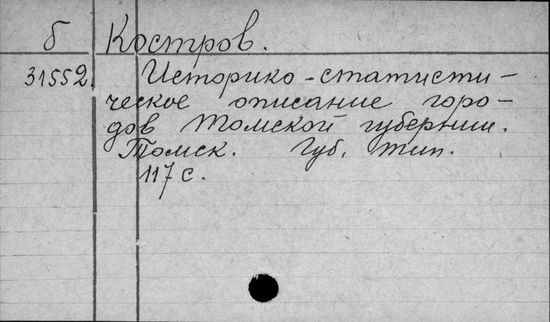 б Костров.
31552 Историко-статисти-
ческое описание горо-
дов Томской губернии.
Томск. Губ. тип.
117 с.